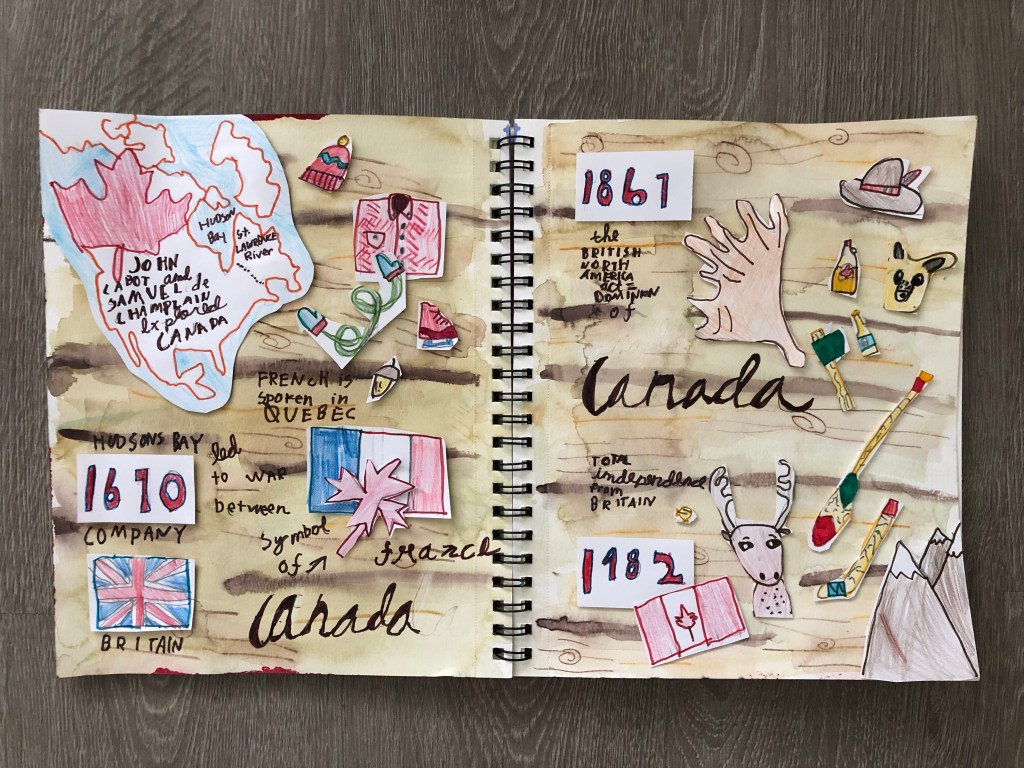 HUDSON
BAY
St.
LAWRENCE
River
JOHN
CABOT and
SAMUEL de
CHAMPLAIN
Explored
CANADA
FRENCH is
spoken in
QUEBEC
HUDSONS BAY
1670
COMPANY
led
to WAR
between
BRITAIN
france
symbol
of
Canada
1867
the
BRITISH
NORTH
AMERICA
act =
DOMINION
of
Canada
TOTAL
independence
from
BRITAIN
1982